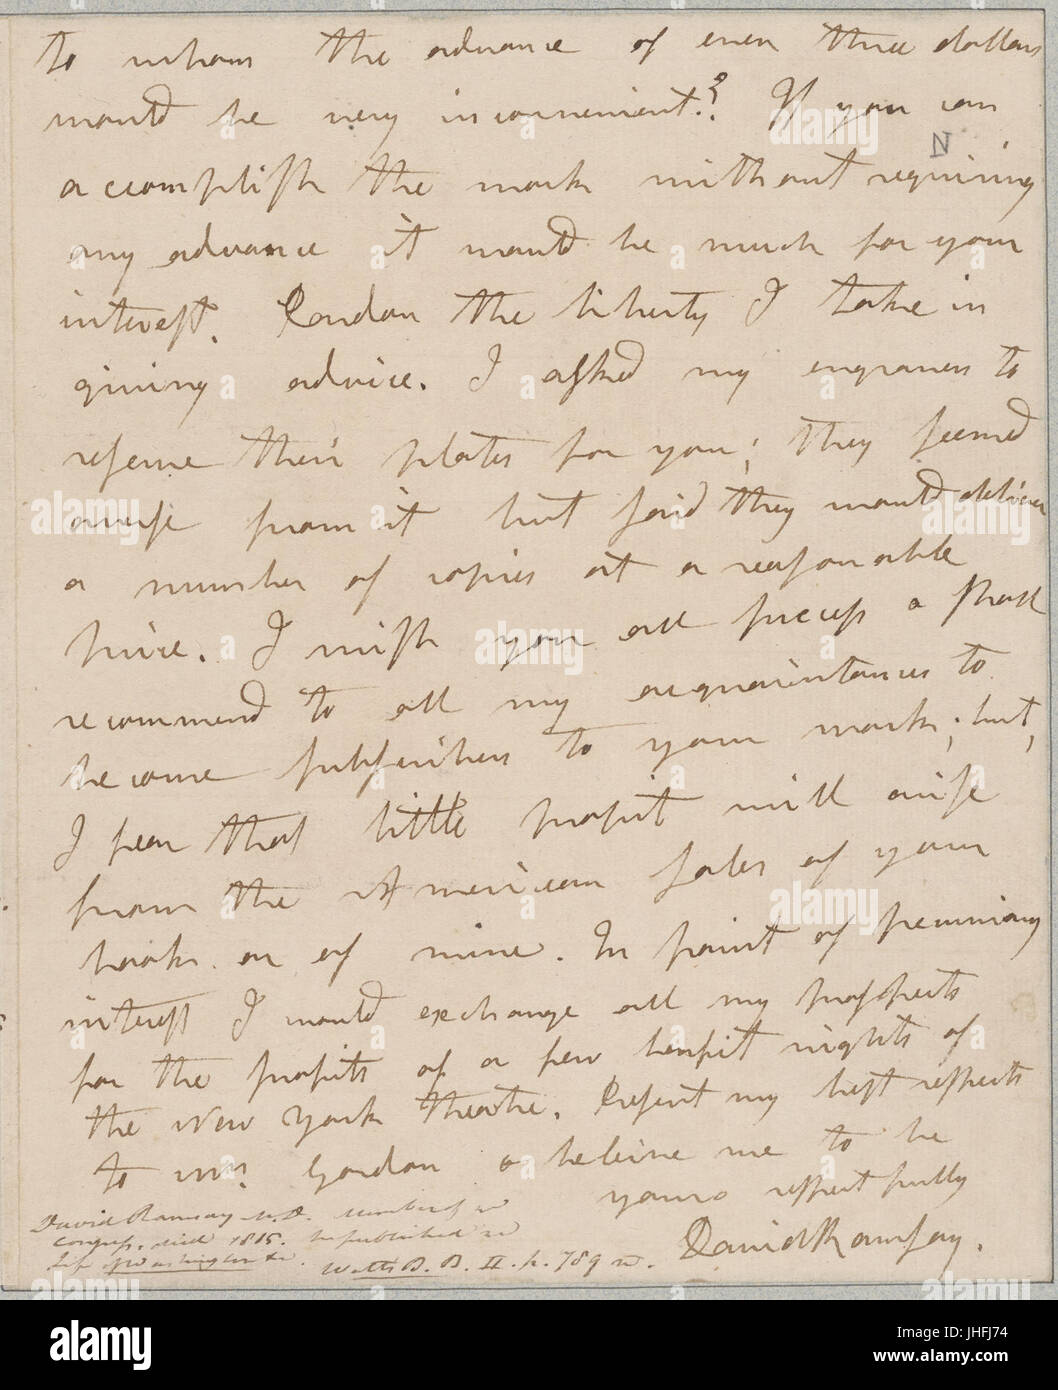 to whom the advance of even three dollars
would be very inconvenient? If you can
N
accomplish the work without requiring
any advance it would be much for your
interest. Pardon the liberty I take in
giving advice. I asked my engravers to
reserve their plates for you; they seemed
averse from it but said they would deliver
a number of copies at a reasonable
price. I wish you all success & shall
recommend to all my acquaintances to
become subscribers to your work; but,
I fear that little profit will arise
from the American sales of your
book or of mine. In point of pecuniary
interest I would exchange all my prospects
for the profits of a few benefit nights of
the New York theatre. Present my best respects
to Mrs. Gordon & believe me to be
yours respectfully
David Ramsay.
David Ramsay M.D. member of
Congress. died 1815. he published
Life of Washington &c.
Watts B. B. II. p. 789
alamy
a
alamy stock photo
JHFJ74
www.alamy.com